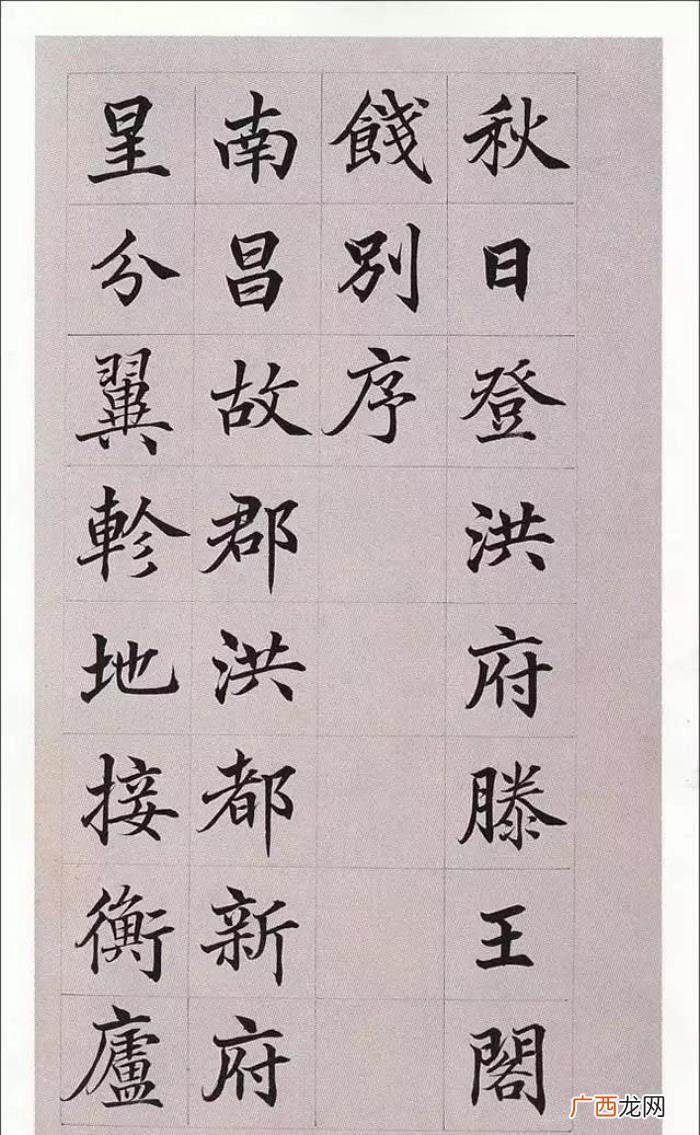 秋日登洪府滕王閣
餞別序
南昌故郡洪都新府
星分翼軫地接衡廬
广西龙网